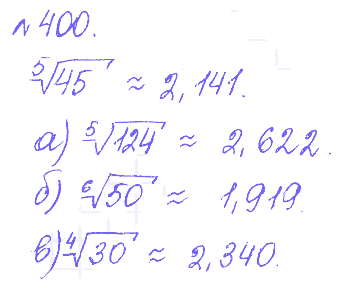 № 400.
⁵√45 ≈ 2,141.
а) ⁵√124 ≈ 2,622.
б) ⁶√50 ≈ 1,919.
в) ⁴√30 ≈ 2,340.